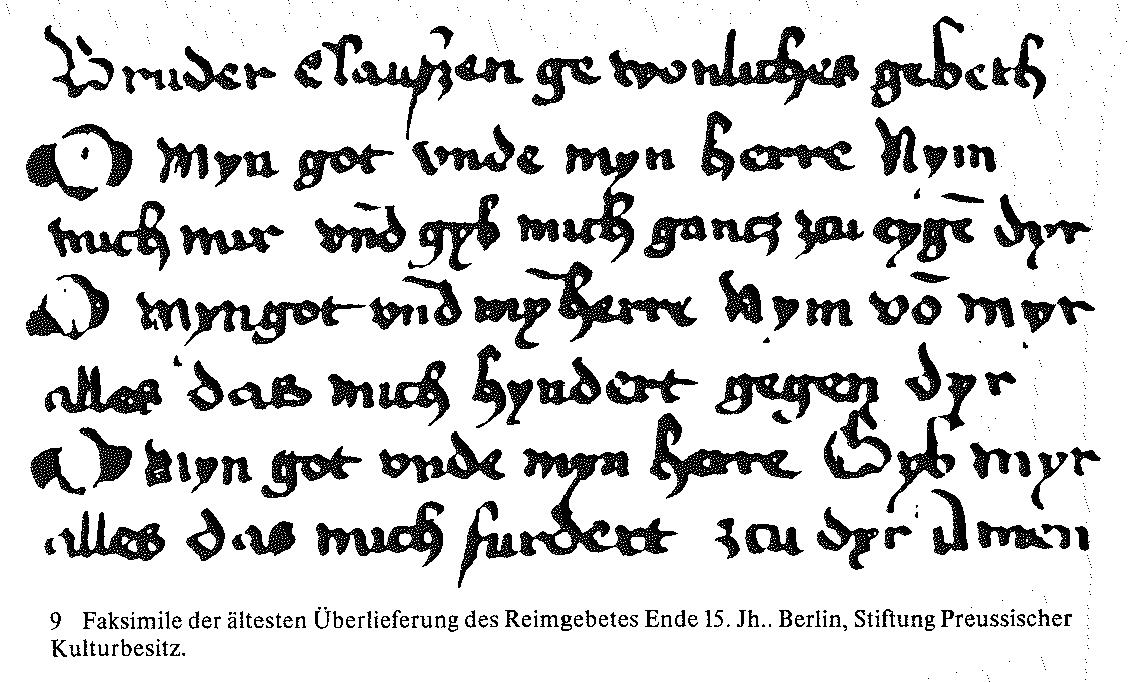 Bruder Claußen ge wonliches gebeth
O Myn got vnde myn herre Nym
mich mir vn̄d gyb mich gancz zcu eygē dyr
O myn got vn̄d mȳ herre Nym vō myr
alles das mich hyndert gegen dyr
O Myn got vnde myn herre Gyb myr
alles das mich furdert zcu dyr Amen
9 Faksimile der ältesten Überlieferung des Reimgebetes Ende 15. Jh.. Berlin, Stiftung Preussischer
Kulturbesitz.